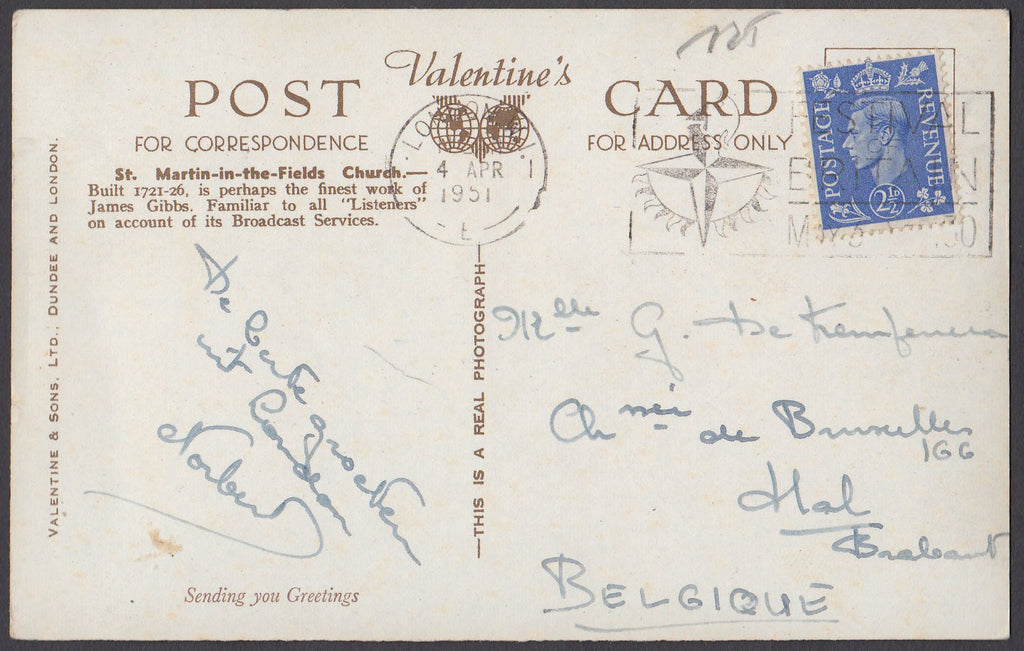 125
POST Valentine's CARD
FOR CORRESPONDENCE
FOR ADDRESS ONLY
St. Martin-in-the-Fields Church.—
Built 1721-26, is perhaps the finest work of
James Gibbs. Familiar to all "Listeners"
on account of its Broadcast Services.
LONDON
4 APR
1951
E
FESTIVAL
OF
BRITAIN
MAY 3 30
POSTAGE REVENUE
2½D
VALENTINE & SONS, LTD., DUNDEE AND LONDON.
—THIS IS A REAL PHOTOGRAPH—
De beste groeten
uit London
Norbert
Sending you Greetings
Mlle G. De
Chssée de Bruxelles
166
Hal
Brabant
BELGIQUE